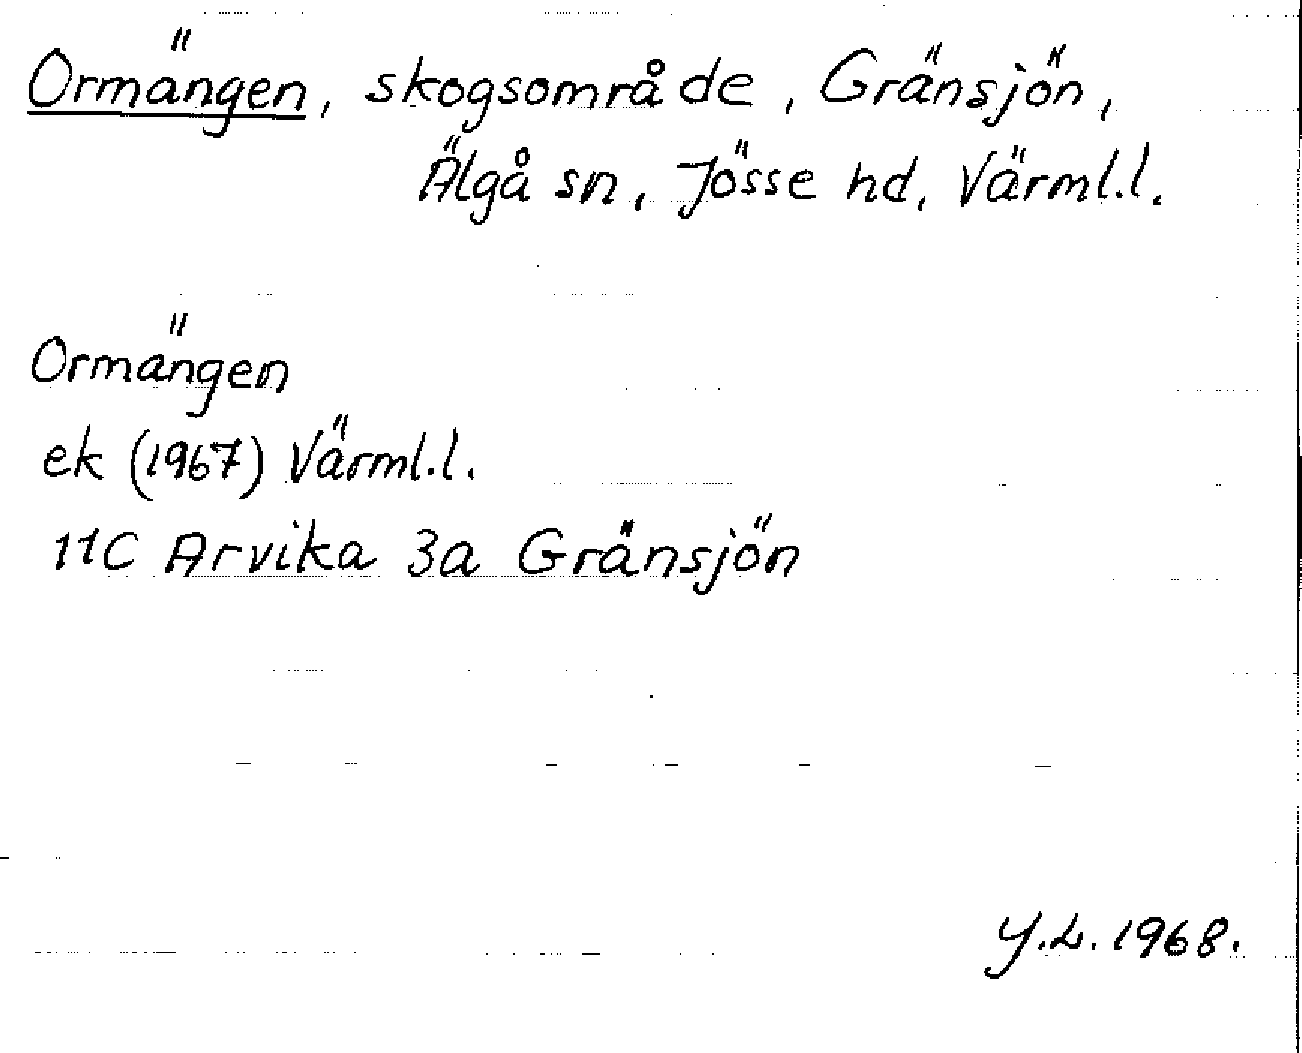 Ormängen, skogsområde, Gränsjön,
Älgå sn, Jösse hd, Värml.l.
Ormängen
ek (1967) Värml.l.
11C Arvika 3a Gränsjön
Y.L. 1968.